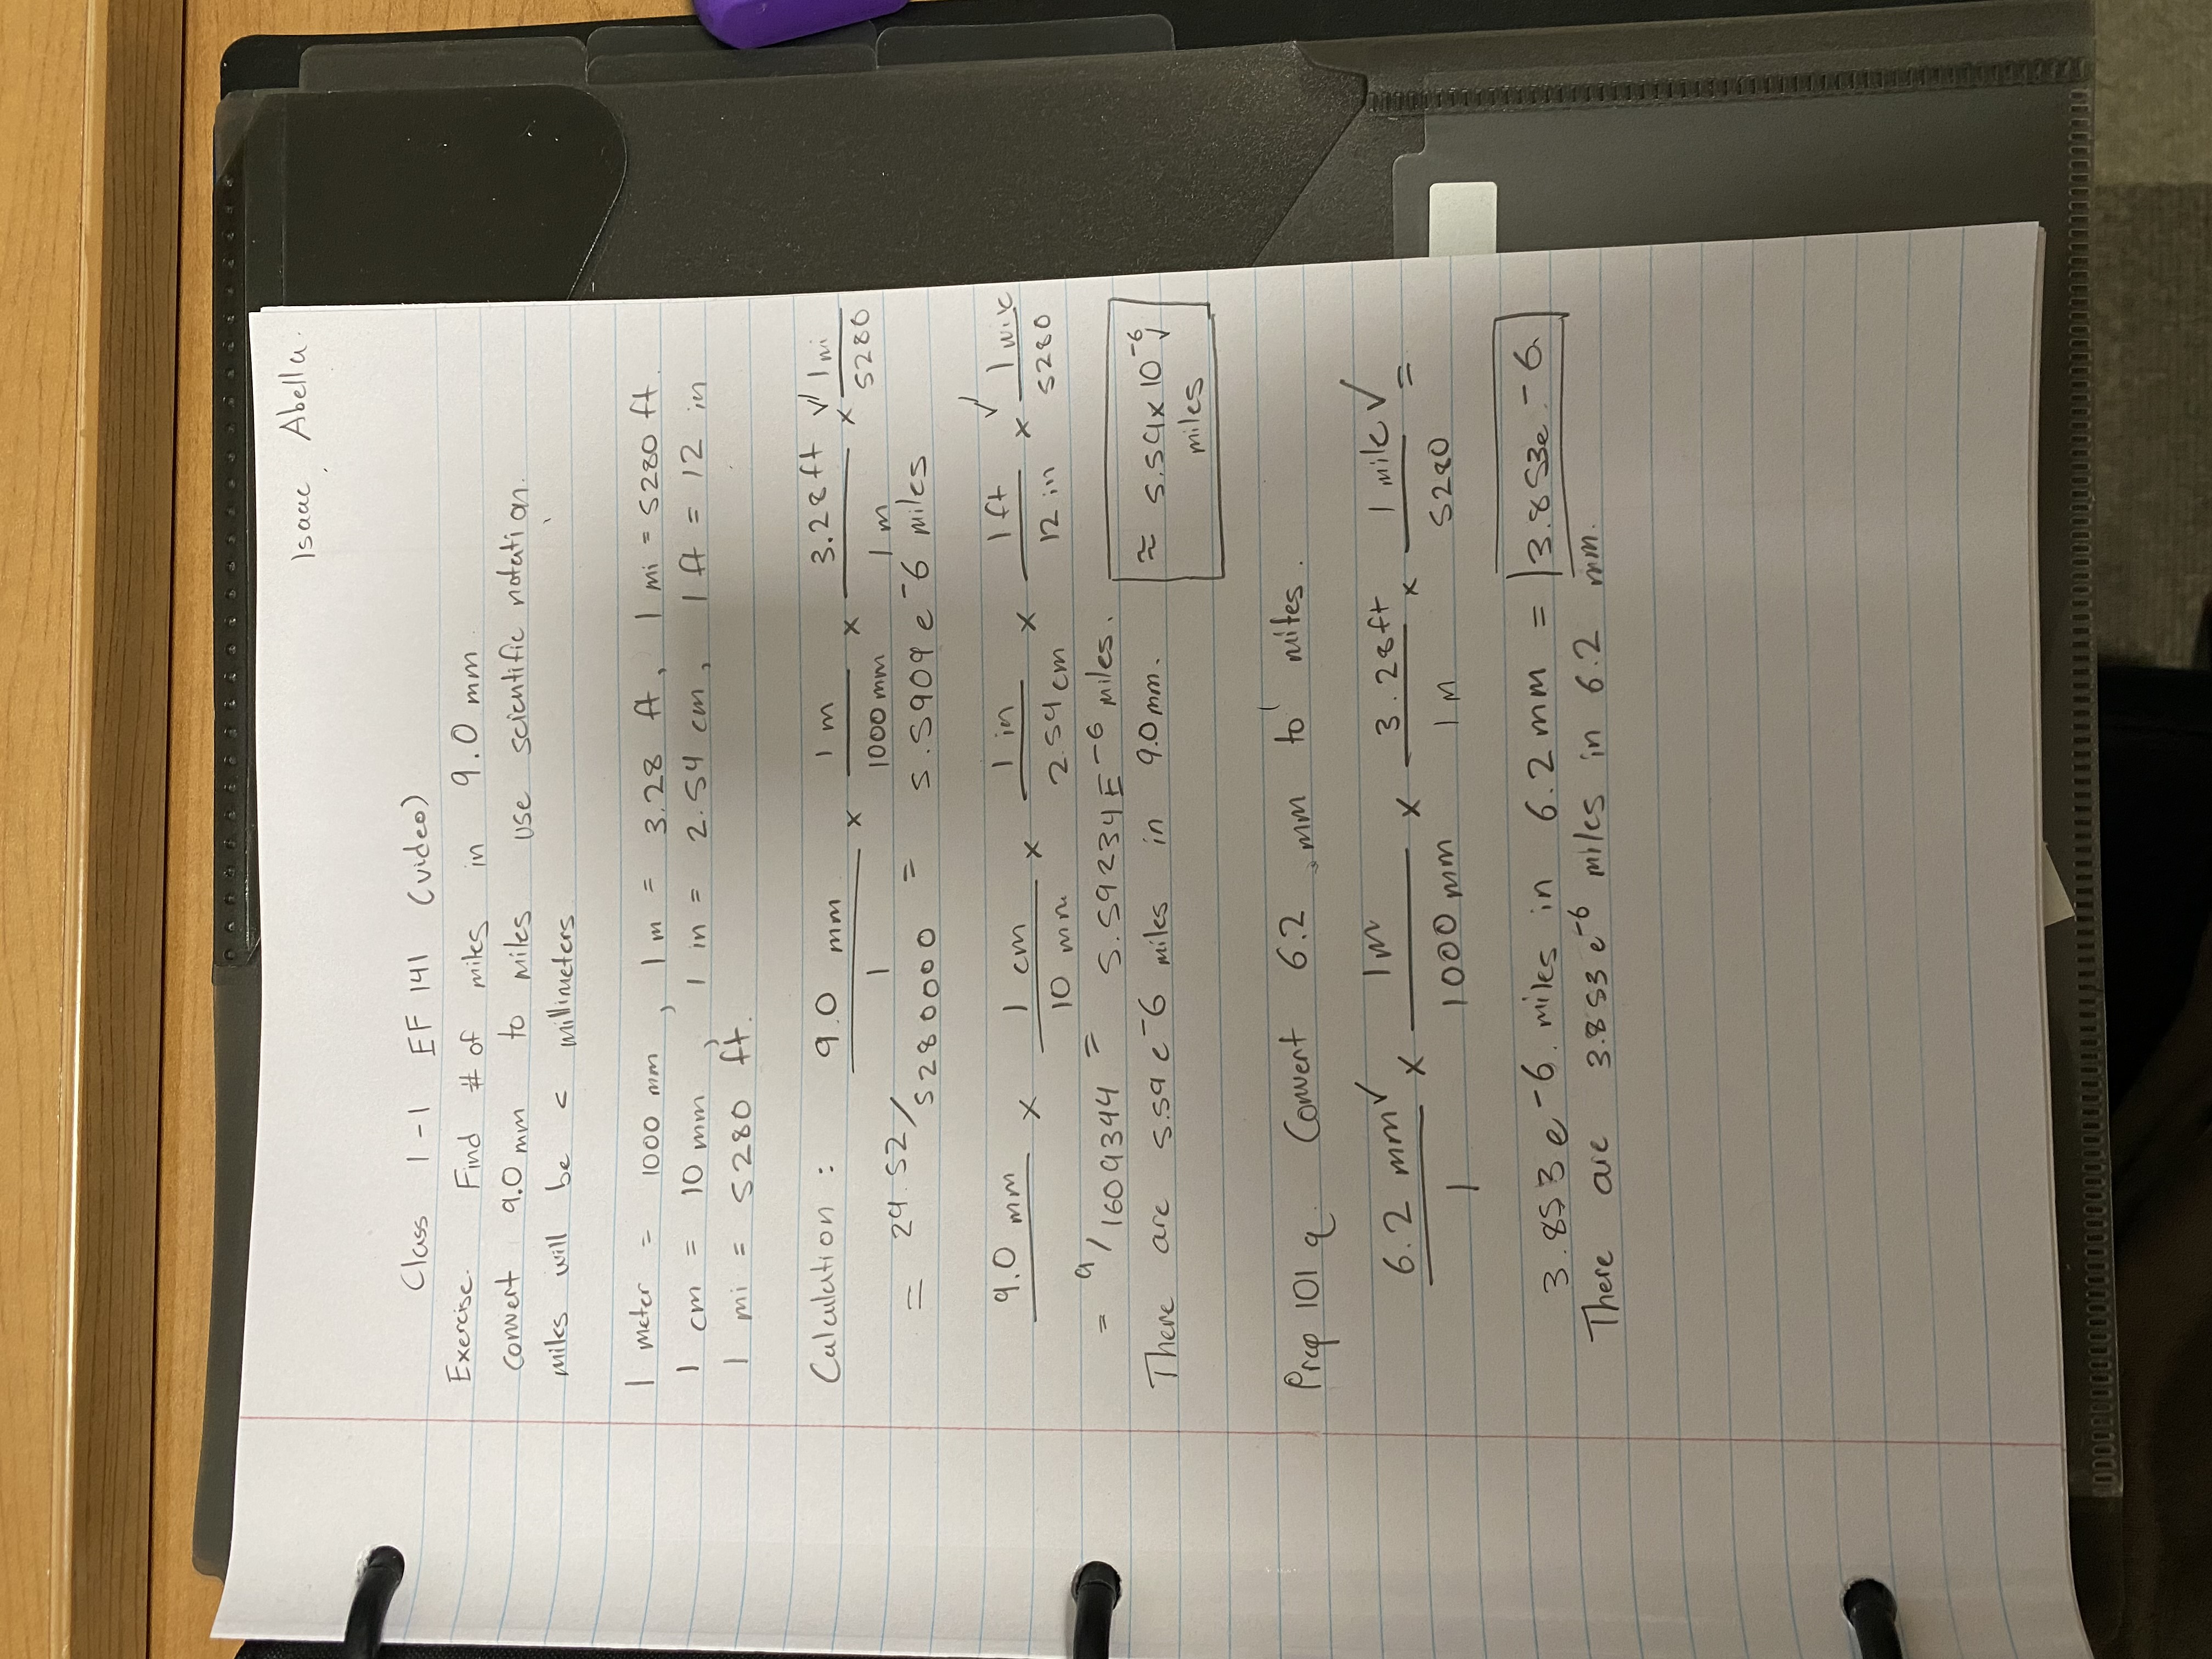 Isaac Abella.
Class 1-1 EF 141 (video)
Exercise. Find # of miles in 9.0 mm
convert 9.0 mm to miles use scientific notation.
miles will be < millimeters
1 meter = 1000 mm, 1 m = 3.28 ft, 1 mi = 5280 ft.
1 cm = 10 mm, 1 in = 2.54 cm, 1 ft = 12 in
1 mi = 5280 ft.
Calculation: 9.0 mm/1 × 1 m/1000 mm × 3.28 ft/1 m ✓ × 1 mi/5280
= 29.52/5280000 = 5.5909 e⁻6 miles
9.0 mm × 1 cm/10 mm × 1 in/2.54 cm × 1 ft/12 in ✓ × 1 mile/5280
= 9/1609344 = 5.59234E⁻⁶ miles.
There are 5.59 e⁻6 miles in 9.0 mm.
≈ 5.59 × 10⁻⁶ ✓
miles
Prep 101 q. Convert 6.2 mm to miles.
6.2 mm ✓/1 × 1m/1000 mm × 3.28 ft/1 m × 1 mile ✓/5280 =
3.853 e⁻6 miles in 6.2 mm = 3.853e-6
There are 3.853 e⁻⁶ miles in 6.2 mm.